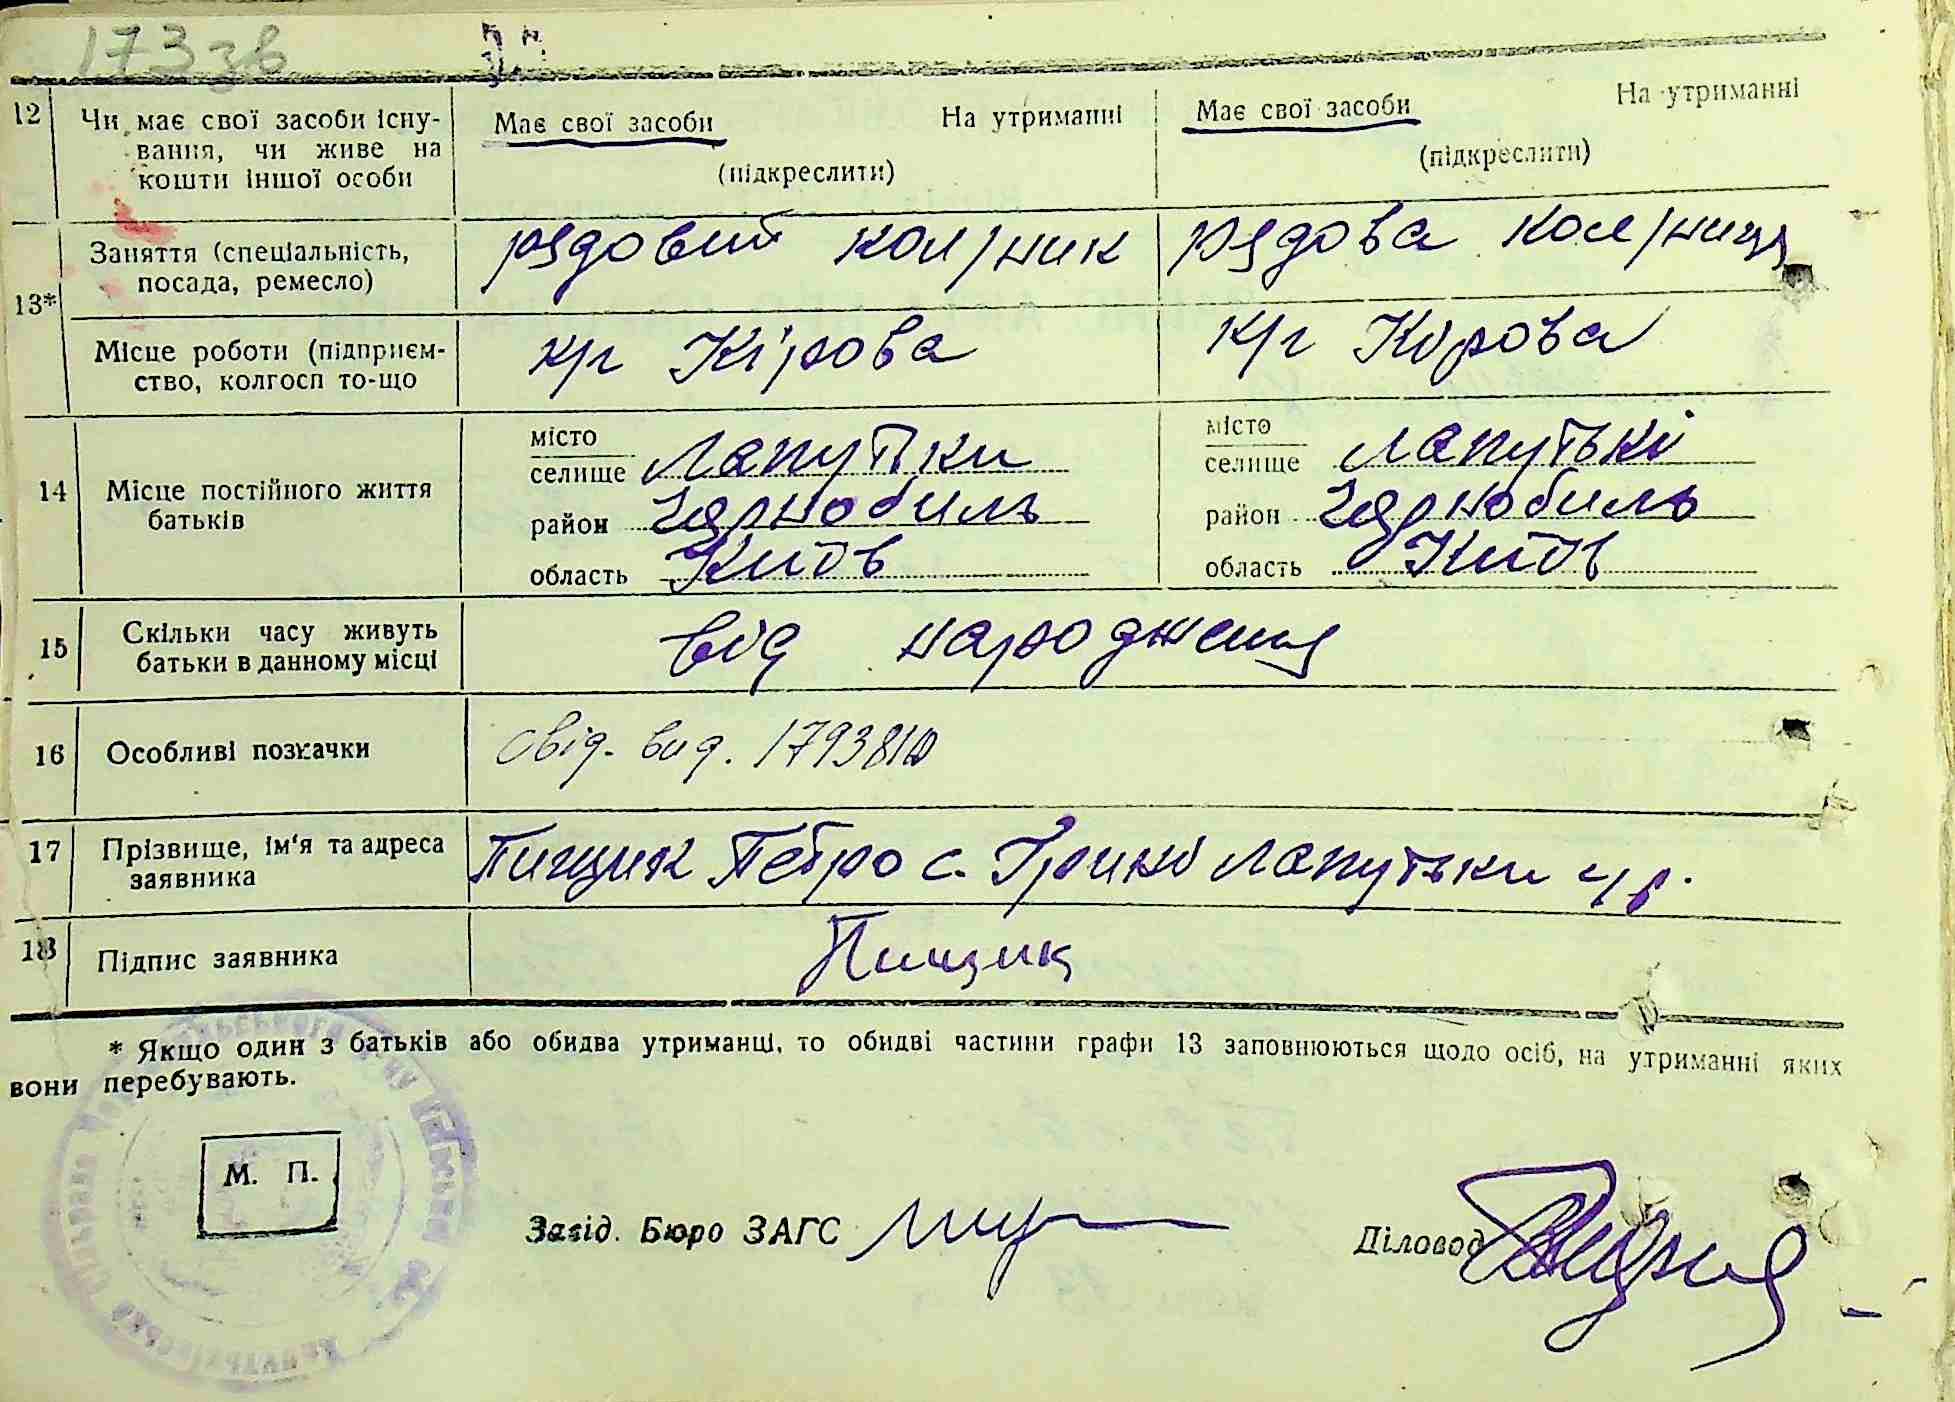 173 зв
12 Чи має свої засоби існу-
вання, чи живе на
кошти іншої особи
Має свої засоби На утриманні
(підкреслити)
Має свої засоби На утриманні
(підкреслити)
13*
Заняття (спеціальність,
посада, ремесло)
рядовий кол/ник
рядова кол/ниця
Місце роботи (підприєм-
ство, колгосп то-що
к/г Кірова
к/г Кірова
14 Місце постійного життя
батьків
місто
селище Лапутьки
район Чернобиль
область Київ
місто
селище Лапутькі
район Чернобиль
область Київ
15 Скільки часу живуть
батьки в данному місці
від народження
16 Особливі позначки
Свід. вид.
17 Прізвище, ім'я та адреса
заявника
Пищик Петро с. Лапутьки
18 Підпис заявника
Пищик
* Якщо один з батьків або обидва утриманці, то обидві частини графи 13 заповнюються щодо осіб, на утриманні яких
вони перебувають.
М. П.
Завід. Бюро ЗАГС
Діловод